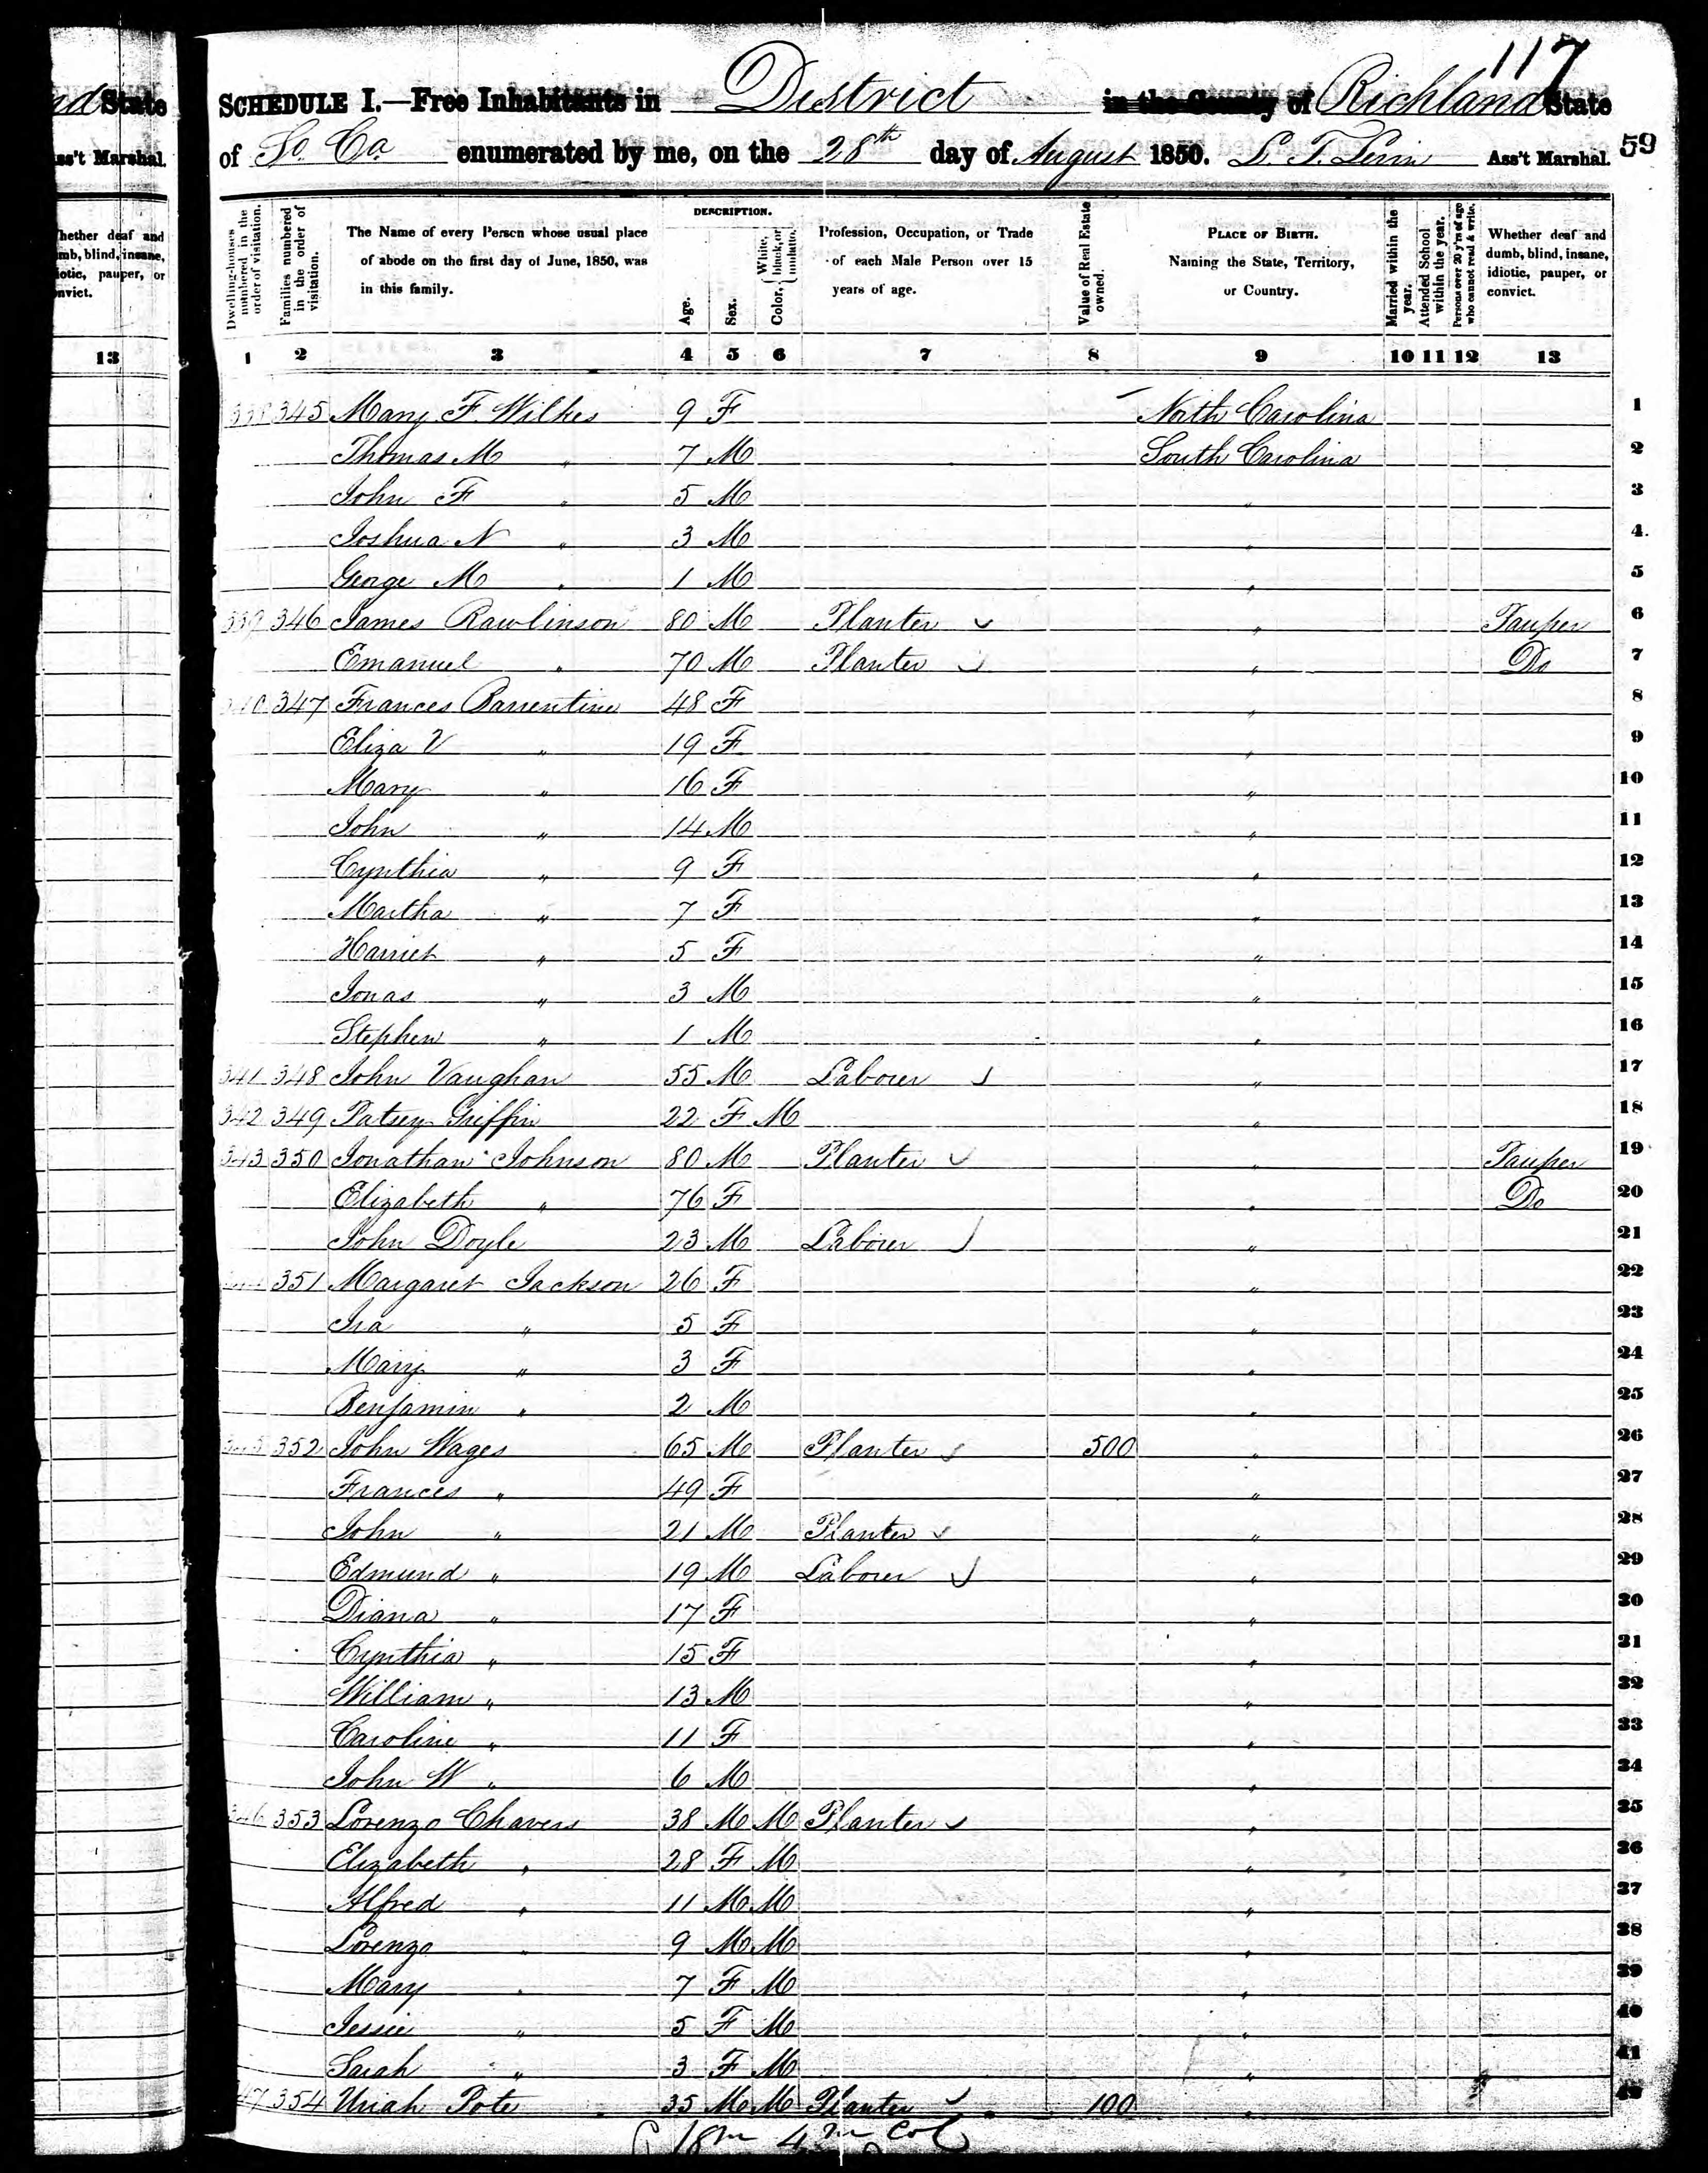 117
nd State
SCHEDULE I.—Free Inhabitants in District in the County of Richland State
ss't Marshal.
of So. Ca. enumerated by me, on the 28th day of August 1850. L. T. Levin Ass't Marshal. 59
hether deaf and
mb, blind, insane,
iotic, pauper, or
nvict.
13
Dwelling-houses numbered in the order of visitation.
Families numbered in the order of visitation.
The Name of every Person whose usual place of abode on the first day of June, 1850, was in this family.
DESCRIPTION.
Age.
Sex.
Color, { White, black, or mulatto.
Profession, Occupation, or Trade of each Male Person over 15 years of age.
Value of Real Estate owned.
PLACE OF BIRTH. Naming the State, Territory, or Country.
Married within the year.
Attended School within the year.
Persons over 20 y'rs of age who cannot read & write.
Whether deaf and dumb, blind, insane, idiotic, pauper, or convict.
1 2 3 4 5 6 7 8 9 10 11 12 13
338 345 Mary F. Wilkes 9 F North Carolina 1
Thomas M " 7 M South Carolina 2
John F " 5 M " 3
Joshua N " 3 M " 4
George M " 1 M " 5
339 346 James Rawlinson 80 M Planter " Pauper 6
Emanuel " 70 M Planter " Do 7
340 347 Frances Barrentine 48 F " 8
Eliza V " 19 F " 9
Mary " 16 F " 10
John " 14 M " 11
Cynthia " 9 F " 12
Martha " 7 F " 13
Harriet " 5 F " 14
Jonas " 3 M " 15
Stephen " 1 M " 16
341 348 John Vaughan 55 M Laborer " 17
342 349 Patsey Griffin 22 F M " 18
343 350 Jonathan Johnson 80 M Planter " Pauper 19
Elizabeth " 76 F " Do 20
John Doyle 23 M Laborer " 21
351 Margaret Jackson 26 F " 22
Ira " 5 F " 23
Mary " 3 F " 24
Benjamin " 2 M " 25
345 352 John Wages 65 M Planter 500 " 26
Frances " 49 F " 27
John " 21 M Planter " 28
Edmund " 19 M Laborer " 29
Diana " 17 F " 30
Cynthia " 15 F " 31
William " 13 M " 32
Caroline " 11 F " 33
John W " 6 M " 34
346 353 Lorenzo Chavers 38 M M Planter " 35
Elizabeth " 28 F M " 36
Alfred " 11 M M " 37
Lorenzo " 9 M M " 38
Mary " 7 F M " 39
Jessie " 5 F M " 40
Sarah " 3 F M " 41
47 354 Uriah Pote 35 M M Planter 100 " 42
18m 4m Col